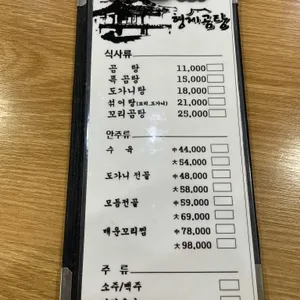 형제곰탕
식사류
곰 탕 11,000
특곰탕 15,000
도가니탕 18,000
섞어탕(꼬리,도가니) 21,000
꼬리곰탕 25,000
안주류
수 육 中 44,000
大 54,000
도가니 전골 中 48,000
大 58,000
모듬전골 中 59,000
大 69,000
매운꼬리찜 中 78,000
大 98,000
주 류
소주/맥주